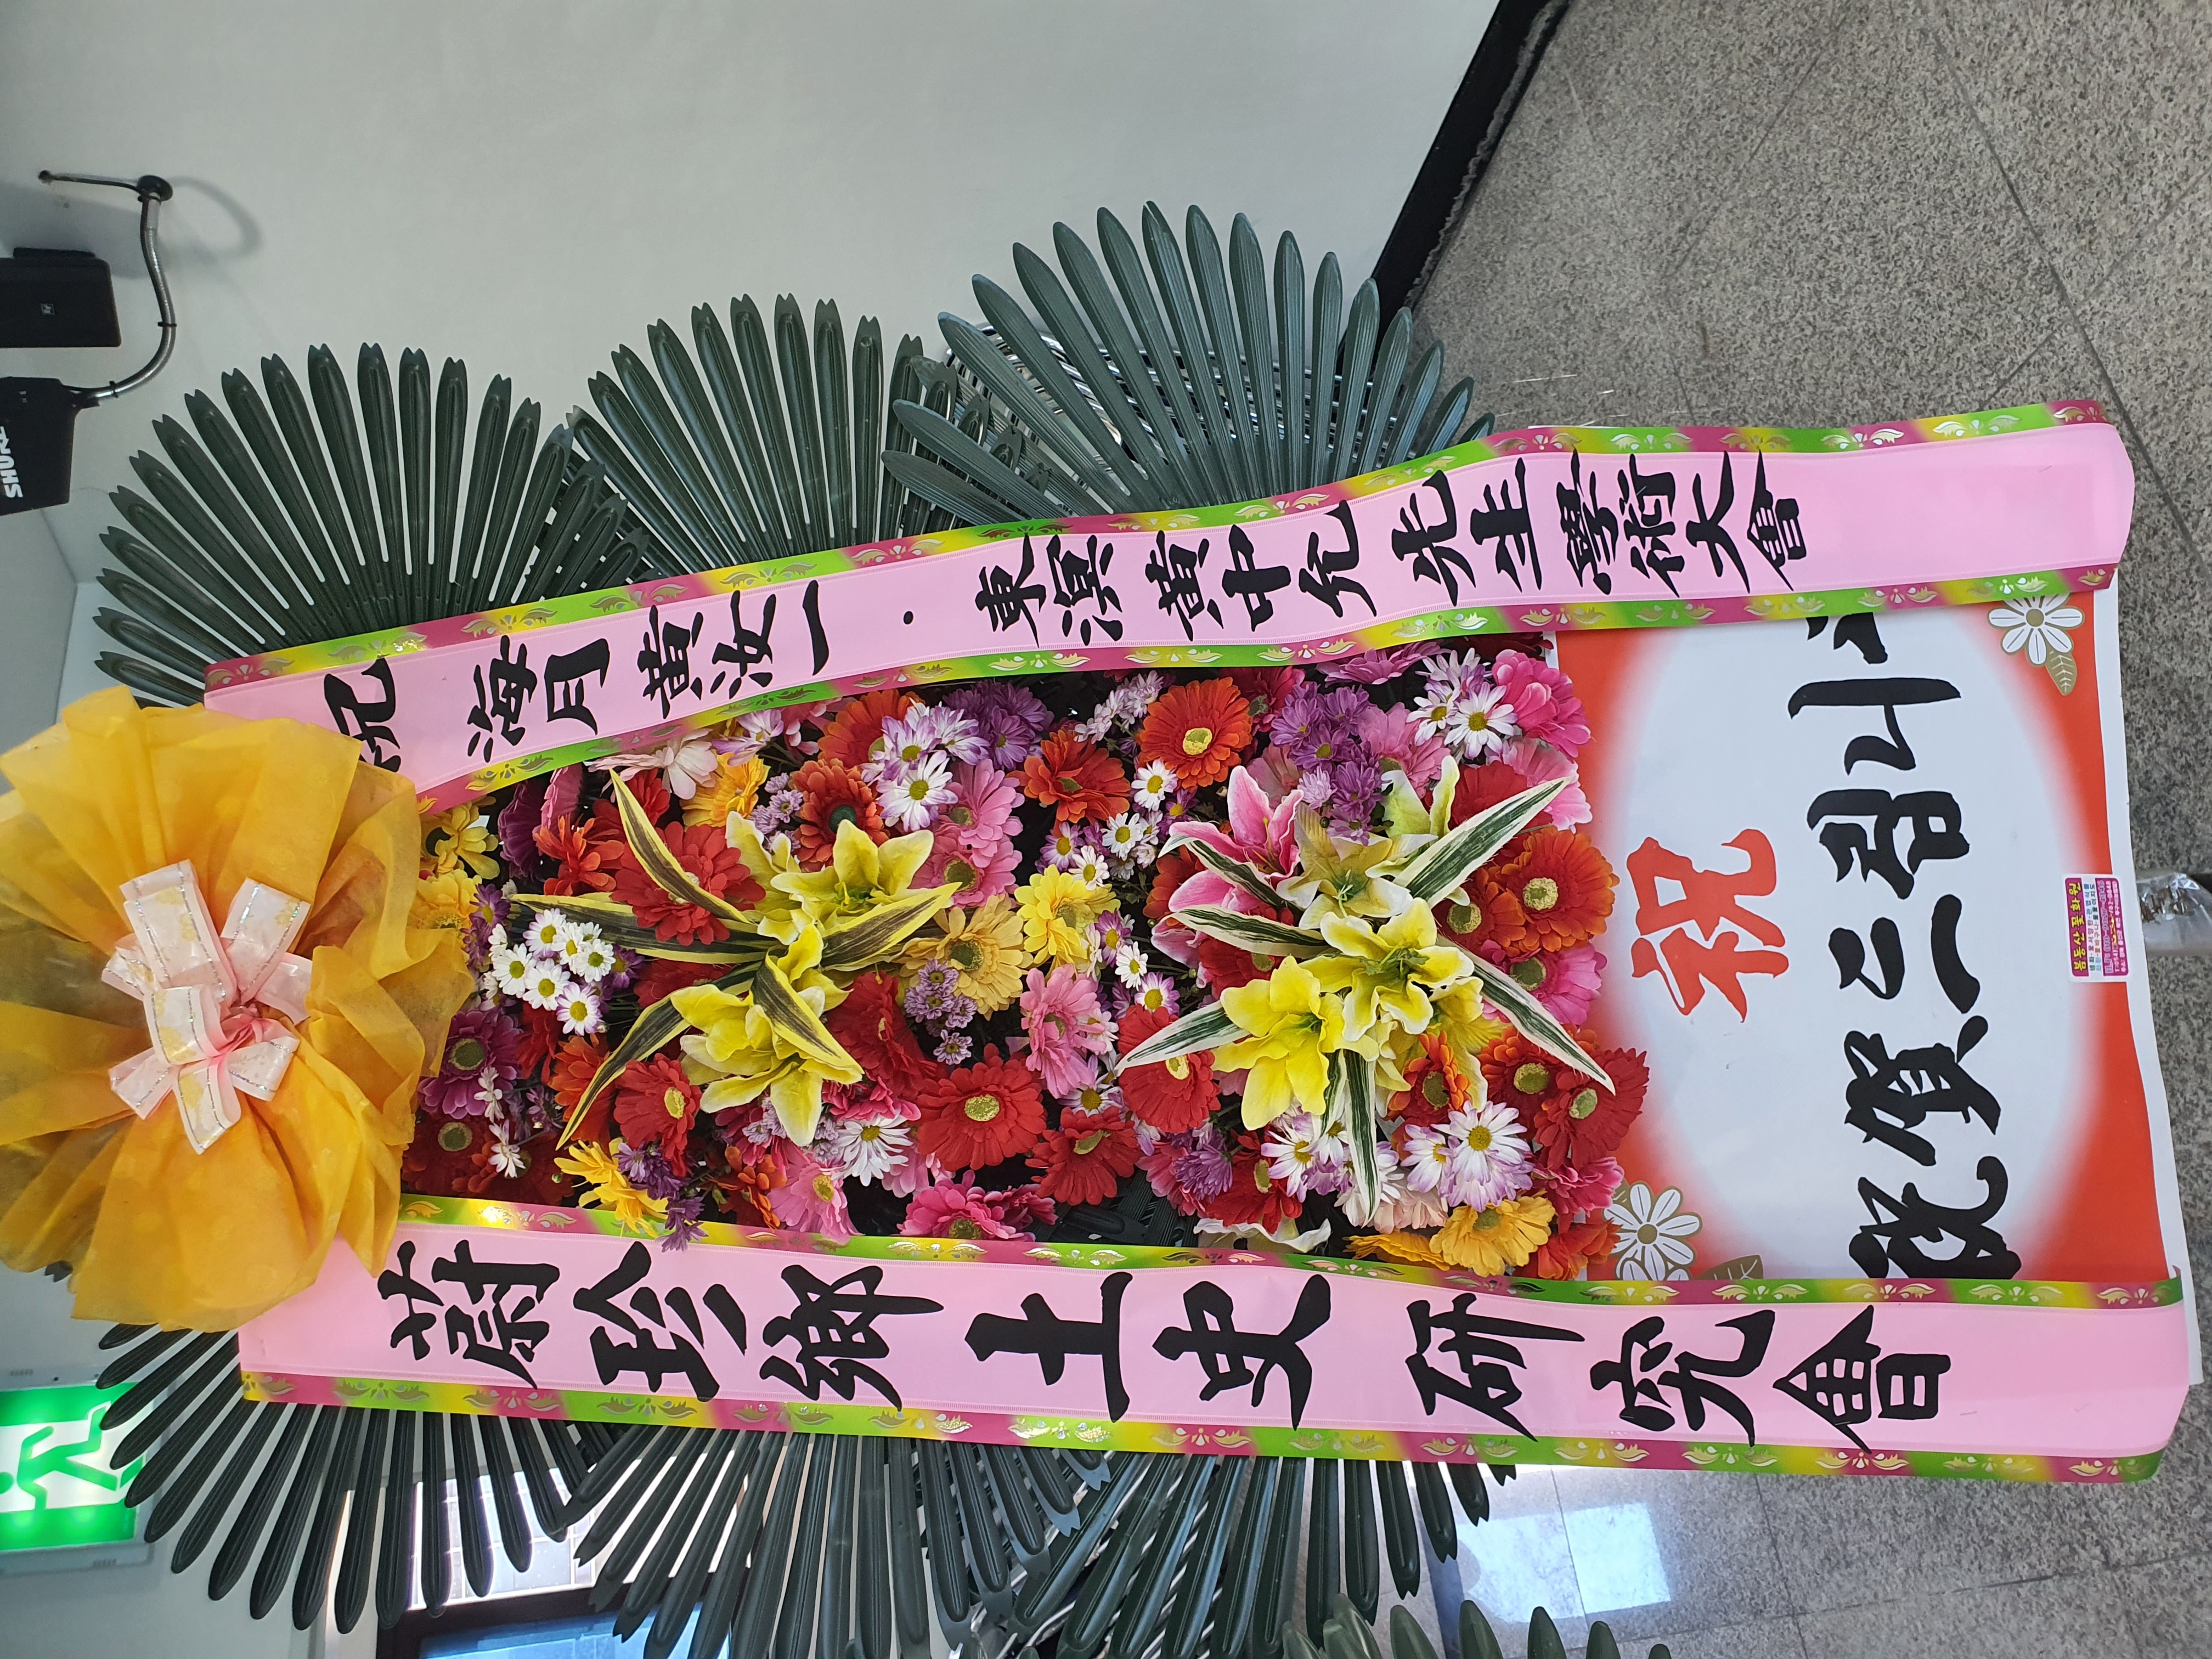 祝 海月 黃汝一 · 東溟 黃中允 先生 學術大會
蔚珍鄕土史硏究會
祝
祝賀드립니다
SHURE